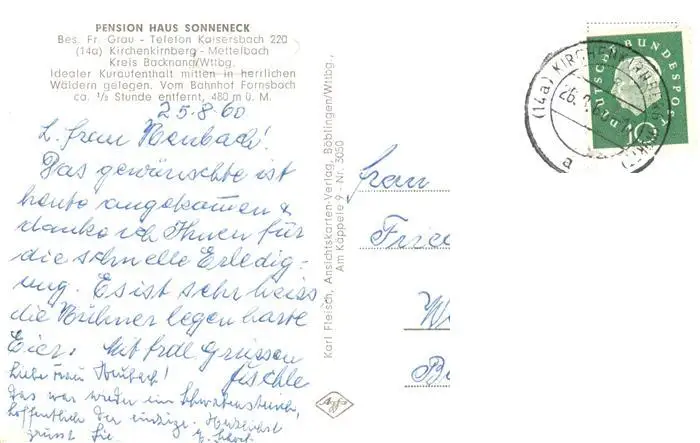 PENSION HAUS SONNENECK
Bes. Fr. Grau - Telefon Kaisersbach 220
(14a) Kirchenkirnberg - Mettelbach
Kreis Backnang/Wttbg.
Idealer Kuraufenthalt mitten in herrlichen
Wäldern gelegen. Vom Bahnhof Fornsbach
ca. ½ Stunde entfernt, 480 m ü. M.
25.8.60
L. Frau Neubach!
Das gewünschte ist
heute angekommen &
danke ich Ihnen für
die schnelle Erledig-
ung. Es ist sehr heiss
die Hühner legen harte
Eier. Mit frdl Grüssen
Jüschle
Liebe Frau Neubach!
Das war wieder ein Schwabenstreich,
hoffentlich der einzige. Herzlichst
grüsst Sie
Karl Fleisch, Ansichtskarten-Verlag, Böblingen/Wttbg.
Am Käppele 9 - Nr. 3050
Agfa
Frau
Frie
W
B
(14a) KIRCHENKIRNBERG
a
DEUTSCHE BUNDESPOST
10